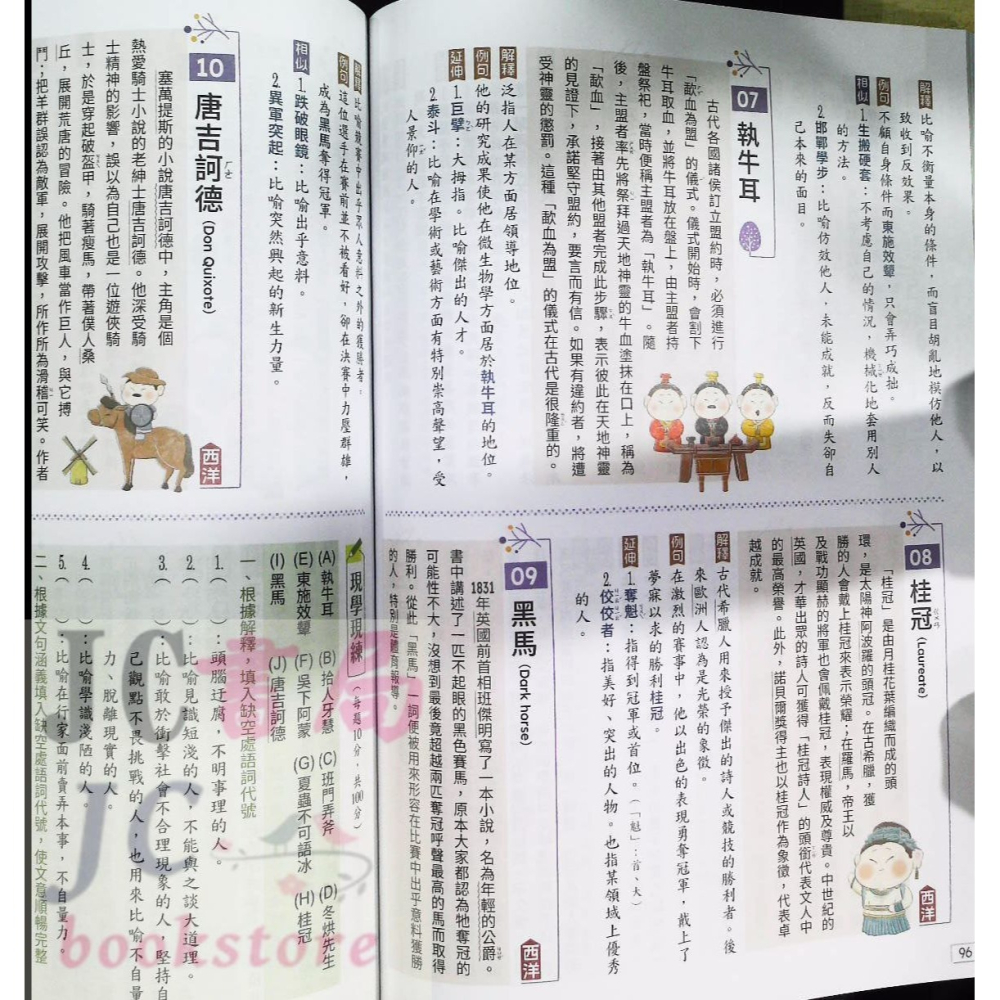 解釋 比喻不衡量本身的條件，而盲目胡亂地模仿他人，以
致收到反效果。
例句 不顧自身條件而東施效顰，只會弄巧成拙。
相似 1.生搬硬套：不考慮自己的情況，機械化地套用別人
的方法。
2.邯鄲學步：比喻仿效他人，未能成就，反而失卻自
己本來的面目。
07 執牛耳
古代各國諸侯訂立盟約時，必須進行
「歃血為盟」的儀式。儀式開始時，會割下
牛耳取血，並將牛耳放在盤上，由主盟者持
盤祭祀，當時便稱主盟者為「執牛耳」。隨
後，主盟者率先將祭拜過天地神靈的牛血塗抹在口上，稱為
「歃血」，接著由其他盟者完成此步驟，表示彼此在天地神靈
的見證下，承諾堅守盟約，要言而有信。如果有違約者，將遭
受神靈的懲罰。這種「歃血為盟」的儀式在古代是很隆重的。
解釋 泛指人在某方面居領導地位。
例句 他的研究成果使他在微生物學方面居於執牛耳的地位。
延伸 1.巨擘：大拇指。比喻傑出的人才。
2.泰斗：比喻在學術或藝術方面有特別崇高聲望，受
人景仰的人。
08 桂冠 (Laureate)
西洋
「桂冠」是由月桂花葉編織而成的頭
環，是太陽神阿波羅的頭冠。在古希臘，獲
勝的人會戴上桂冠來表示榮耀；在羅馬，帝王以
及戰功顯赫的將軍也會佩戴桂冠，表現權威及尊貴。中世紀的
英國，才華出眾的詩人可獲得「桂冠詩人」的頭銜代表文人中
的最高榮譽。此外，諾貝爾獎得主也以桂冠作為象徵，代表卓
越成就。
解釋 古代希臘人用來授予傑出的詩人或競技的勝利者。後
來歐洲人認為是光榮的象徵。
例句 在激烈的賽事中，他以出色的表現勇奪冠軍，戴上了
夢寐以求的勝利桂冠。
延伸 1.奪魁：指得到冠軍或首位。（「魁」：首、大）
2.佼佼者：指美好、突出的人物。也指某領域上優秀
的人。
09 黑馬 (Dark horse)
西洋
1831年英國前首相班傑明寫了一本小說，名為年輕的公爵。
書中講述了一匹不起眼的黑色賽馬，原本大家都認為牠奪冠的
可能性不大，沒想到最後竟超越兩匹奪冠呼聲最高的馬而取得
勝利。從此「黑馬」一詞便被用來形容在比賽中出乎意料獲勝
的人，特別是體育報導。
96
解釋 比喻競賽中出乎眾人意料之外的獲勝者。
例句 這位選手在賽前並不被看好，卻在決賽中力壓群雄，
成為黑馬奪得冠軍。
相似 1.跌破眼鏡：比喻出乎意料。
2.異軍突起：比喻突然興起的新生力量。
10 唐吉訶德 (Don Quixote)
ㄏㄜ
西洋
塞萬提斯的小說唐吉訶德中，主角是個
熱愛騎士小說的老紳士唐吉訶德。他深受騎
士精神的影響，誤以為自己也是一位遊俠騎
士，於是穿起破盔甲，騎著瘦馬，帶著僕人桑
丘，展開荒唐的冒險。他把風車當作巨人，與它搏
鬥；把羊群誤認為敵軍，展開攻擊，所作所為滑稽可笑。作者
現學現練（每題10分，共100分）
(A) 執牛耳 (B) 拾人牙慧 (C) 班門弄斧 (D) 冬烘先生
(E) 東施效顰 (F) 吳下阿蒙 (G) 夏蟲不可語冰 (H) 桂冠
(I) 黑馬 (J) 唐吉訶德
一、根據解釋，填入缺空處語詞代號
1.（ ）：頭腦迂腐，不明事理的人。
2.（ ）：比喻見識短淺的人，不能與之談大道理。
3.（ ）：比喻敢於衝擊社會不合理現象的人，堅持自
己觀點不畏挑戰的人，也用來比喻不自量
力、脫離現實的人。
4.（ ）：比喻學識淺陋的人。
5.（ ）：比喻在行家面前賣弄本事，不自量力。
二、根據文句涵義填入缺空處語詞代號，使文意順暢完整
JC書局
JC
bookstore